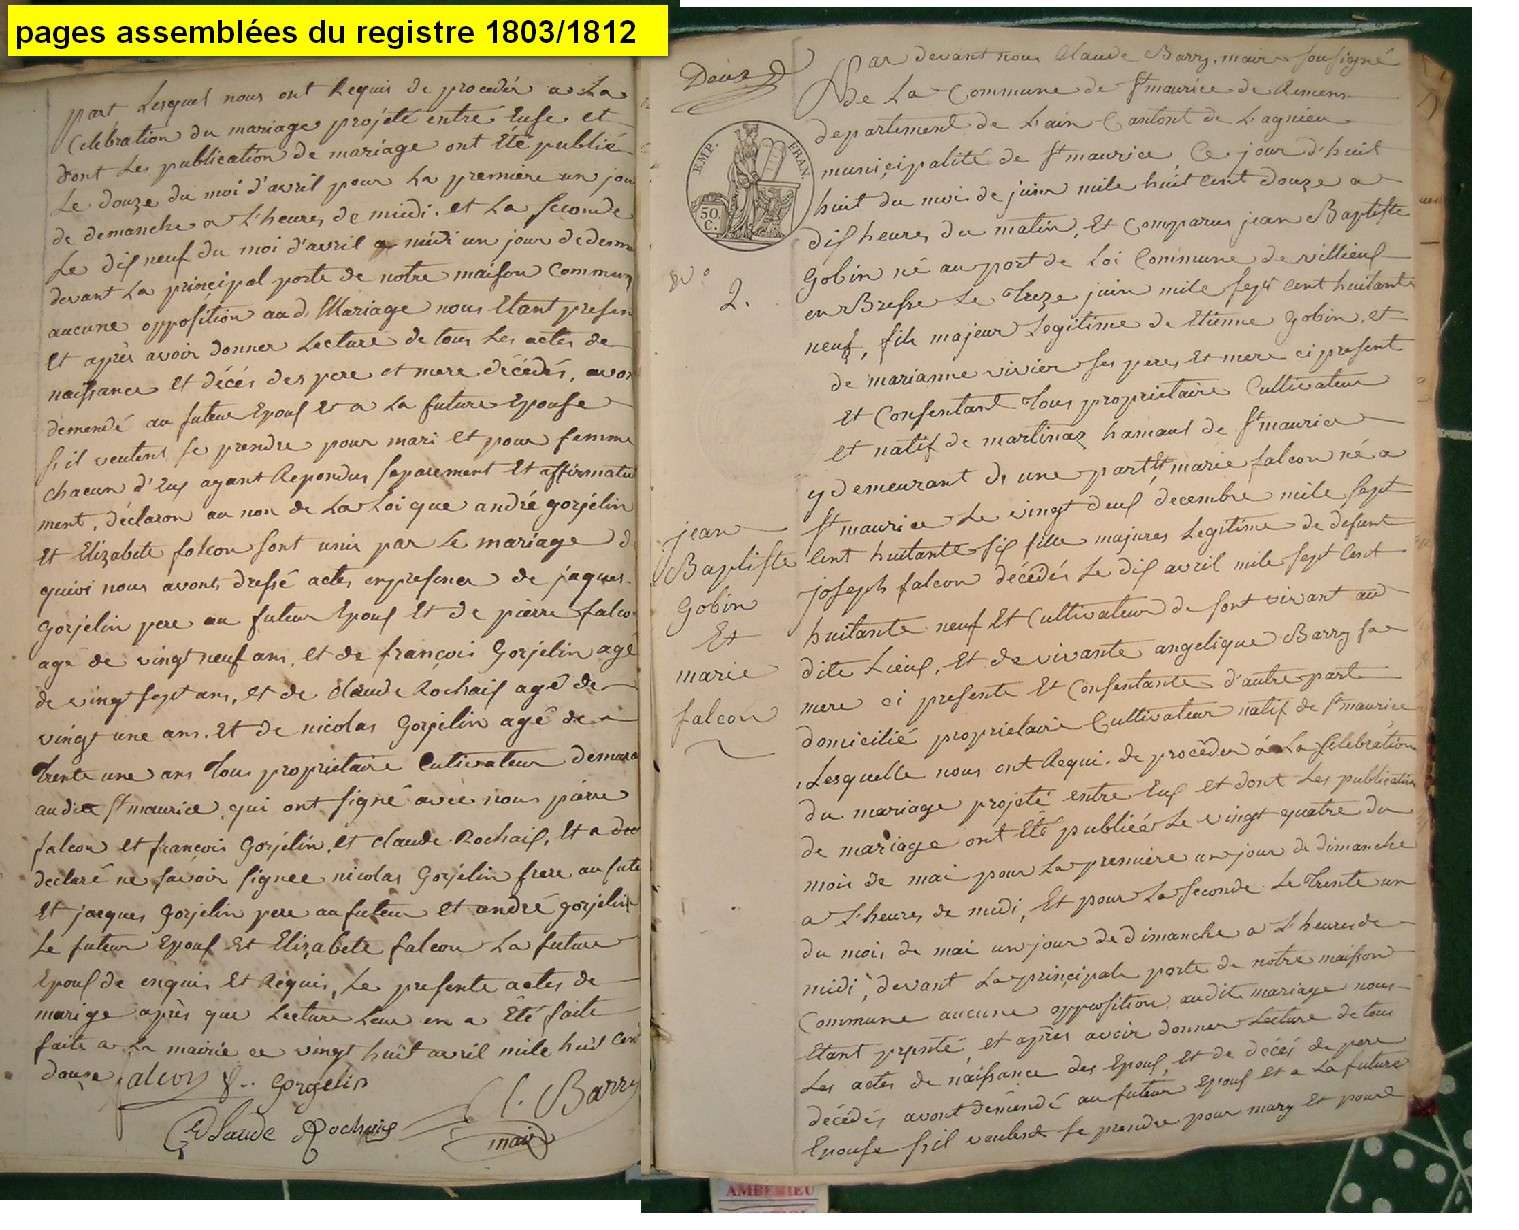 pages assemblées du registre 1803/1812
part Lesquel nous ont Requis de procedér a La
Celébration du mariage projété entré Eufe et
dont Les publication de mariage ont Eté publié
Le douze du moi d'avril pour La premiere un jou
de demanche a L'heures de midi, et La seconde
Le dis neuf du moi d'avril a midi un jour de dem
devant La principal porte de notre maison Commun
aucune oppósition aud. Mariage nous Etant presen
Et aprés avoir donner Lecture de tous Les actes de
naissance et décés des pere et mere décédés, avon
demendé au futeur Epous Et a La future Epouse
s'il veulent se prendre pour mari Et pour femme
chacun d'Eux ayant Repondus separement Et affirmative
ment, déclaron au non de La Loi que andré gorjelin
Et Elizabete falcon sont unis par Le mariage d
quivi nous avons dressé actes enpresence de jaques
gorjelin pere au futeur Epous Et de pierre falco
agé de vingt neuf ans, et de françois Gorjelin agé
de vingt sept ans, et de Claude Rochais agé de
vingt une ans, Et de nicolas Gorjelin agé de
Trente une ans Tous propriétaire Cultivateur demura
audit St maurice, qui ont signé avec nous pierre
falcon et françois Gorjelin, et claude Rochais, Et a
declaré ne savoir signee nicolas Gorjelin frere au fute
Et jacques gorjelin pere au futeur et andré gorjelin
Le futeur Epous Et Elizabete falcon La future
Epous de enquis Et Requis, Le presente actes de
mariage aprés que Lecture Leur en a Eté faite
faite a La mairie ce vingt huit avril mile huit Cen
douze falcon f. gorgelin
C. Barry
Claude Rochais
maire
Deux
EMP. FRAN.
50. C.
No
2.
jean
Baptiste
Gobin
Et
marie
falcon
Par devant nous Claude Barry, maire sousigné
de La Commune de St maurice de Remens
departement de L'ain Cantont de Lagnieu
municipalité de St maurice, Ce jour d'huit
huit du moi de juin mile huit Cent douze a
dis heures du matin, Et Comparus jean Baptiste
Gobin né au port de Loi Commune de villieus
en Bresse Le Treze juin mile sept Cent huitante
neuf, fils majeur Légitime de Etienne gobin, et
de marianne vivier ses pere, Et mere ci present
Et Consentant Tous propriétaire Cultivateur
et natif de martinaz hamaus de St maurice
y demeurant de une part, Et marie falcon né a
St maurice Le vingt deus decembre mile sept
Cent huitante sis fille majures Legitime de defunt
joseph falcon décédés Le dis avril mile sept Cent
huitante neuf Et Cultivateur de son vivant au
dite Lieus, Et de vivante angelique Barry sa
mere ci presente Et Consentante d'autre part
domicilié propriétaire Cultivateur natif de St maurice
Lesquelle nous ont Requi, de procéder á La Celebration
du mariage projeté entre Eus et dont Les publication
de mariage ont Eté publiée Le vingt quatre du
mois de mai pour La premiere un jour de dimanche
a L'heures de midi, Et pour La seconde Le Trente un
du mois de mai un jour de dimanche a L'heures de
midi, devant La principale porte de notre maison
Commune aucune opposition audit mariage nous
Etant présenté, et aprés avoir donner Lecture de tous
Les actes de naissance des Epous, et de décés de pere
décédés avont demendé au futeur Epous Et a La future
Epouse s'il veulent se prendre pour mary Et pour
AMBERIEU